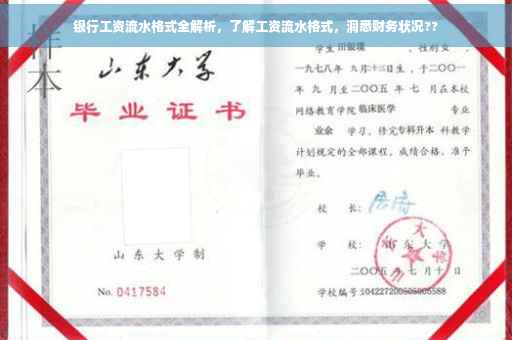 银行工资流水格式全解析，了解工资流水格式，洞悉财务状况??
样本
山东大学
毕业证书
山东大学制
No. 0417584
学生 田银瑞 ，性别女，
一九七八年 九月十三日生，于二〇〇一
年 九 月至二〇〇五 年 七 月在本校
网络教育学院 临床医学 专业
业余 学习，修完专科升本 科教学
计划规定的全部课程，成绩合格，准予
毕业。
校 长：
学 校：山东大学
二〇〇五年七月十日
学校编号:104227200505005588